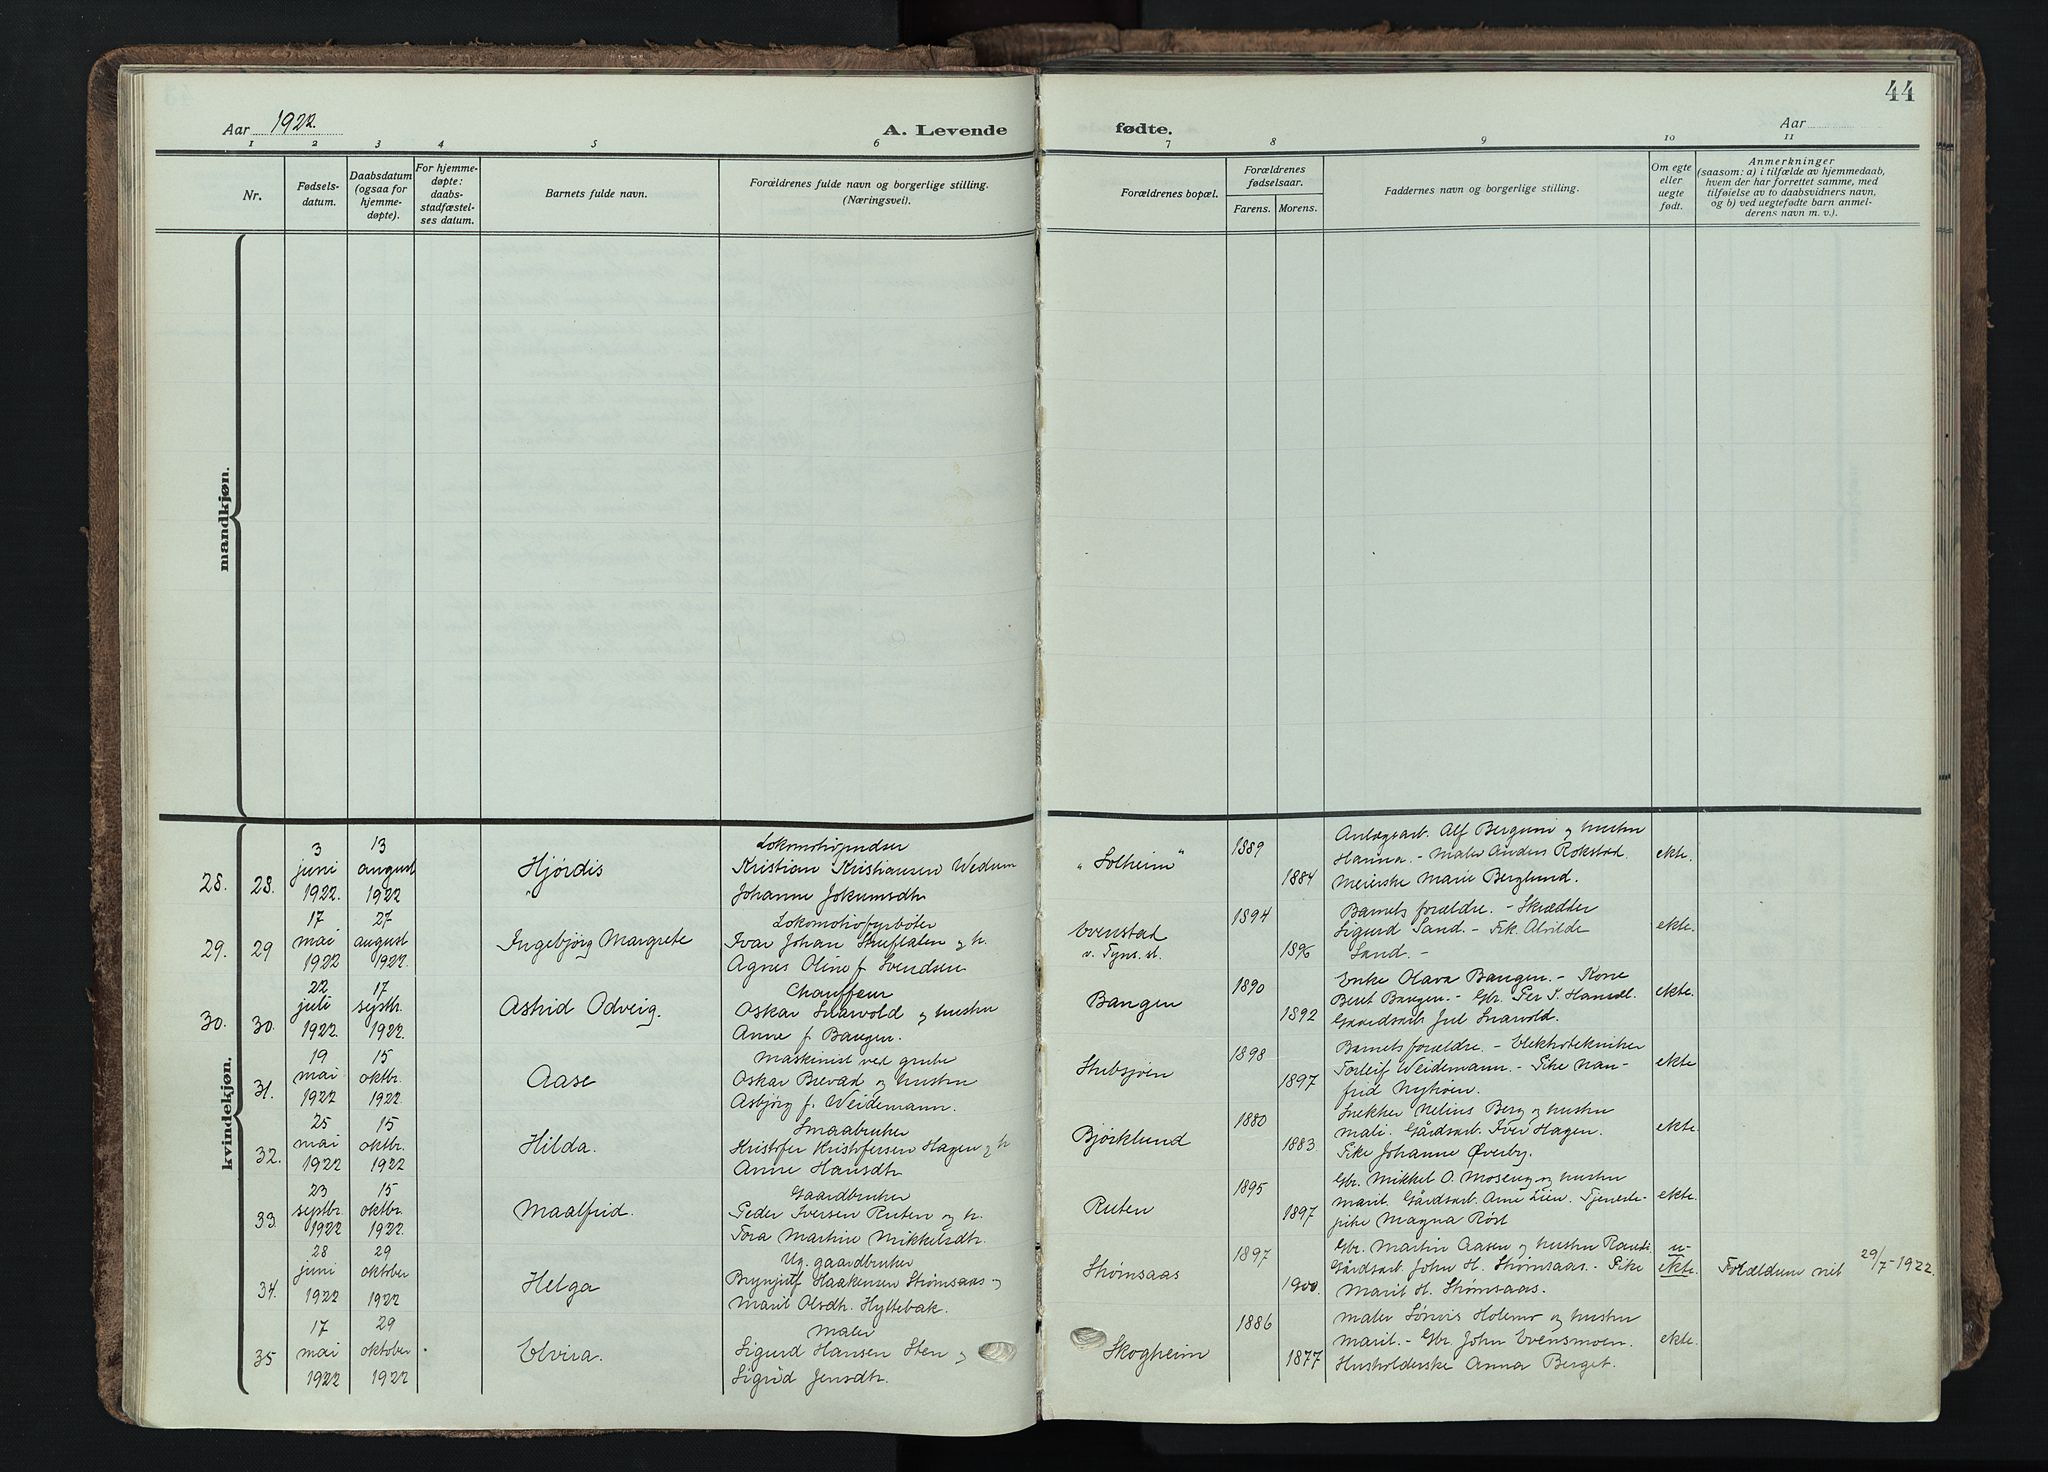 44
Aar 1922.
A. Levende
fødte.
Aar
1 2 3 4 5 6 7 8 9 10 11
Nr.
Fødsels-
datum.
Daabsdatum
(ogsaa for
hjemme-
døpte).
For hjemme-
døpte:
daabs-
stadfæstel-
ses datum.
Barnets fulde navn.
Forældrenes fulde navn og borgerlige stilling.
(Næringsvei).
Forældrenes bopæl.
Forældrenes
fødselsaar.
Farens. Morens.
Faddernes navn og borgerlige stilling.
Om egte
eller
uegte
født.
Anmerkninger
(saasom: a) i tilfælde av hjemmedaab,
hvem der har forrettet samme, med
tilføielse av to daabsvidners navn,
og b) ved uegtefødte barn anmel-
derens navn m. v.).
mandkjøn.
kvindekjøn.
28. 28.
3
juni
1922.
13
august
1922
Hjørdis
Kristian Kristiansen Wedum
Johanne Jokumsdtr
"Solheim"
1889
1884
Anlægsarb. Alf Berguni og hustru
Hanna. - Maler Anders Rokstad.
Meierske Marie Berglund.
ekte.
29. 29
17
mai
1922
27
august
1922.
Ingebjørg Margrete
Lokomotivfyrbøter
Ivar Johan og h.
Agnes Oline f. Svendsen
Evenstad
v. Tyns. st.
1894
1896
Barnets forældre. - Skrædder
Sigurd Sand. - Frk. Alvilde
Sand. -
ekte.
30. 30.
22
juli
1922.
17
septbr.
1922.
Astrid Odveig.
Chauffeur
Oskar Snarvold og hustru
Anne f. Bangen.
Bangen
1890
1892
Enke Olava Bangen. - Kone
Berit Bangen. - Gbr. Per J.
Gaardsarb. Jul Snarvold.
ekte.
31.
19
mai
1922
15
oktbr.
1922.
Aase
Maskinist ved grube
Oskar Brevad og hustru
Asbjørg f. Weidemann.
Stubsjøen
1898
1897
Barnets forældre. - Elektrotekniker
Torleif Weidemann. - Pike Nan-
frid Nyhøen.
ekte
32.
25
mai
1922
15
oktbr.
1922
Hilda.
Smaabruker
Kristofer Kristofersen Hagen og h
Anne Hansdtr
Bjørklund
1880
1883.
Snekker Nelius Berg og hustru
Mali. Gårdsarb. Iver Hagen.
Pike Johanne Øverby.
ekte.
33.
23
septbr.
1922
15
oktbr.
1922.
Maalfrid.
Gaardbruker
Peder Iversen Ruten og h.
Tora Martine Mikkelsdtr.
Ruten
1895
1897
Gbr. Mikkel O. Moseng og hustru
Marit. Gårdsarb. Arne Lien. Tjeneste-
pike Magna Røst
ekte.
34.
28
juni
1922
29
oktober
1922
Helga
Ug. gaardbruker
Brynjulf Haakensen Strømsaas og
Marit Olsdtr. Hyttebak.
Strømsaas
1897
1900.
Gbr. Martin Aasen og hustru Randi
Gårdsarb John H. Strømsaas. - Pike
Marit H. Strømsaas.
u-
ekte.
29/7-1922.
35
17
mai
1922
29
oktober
1922
Elvira.
Maler
Sigurd Hansen Sten og
Sigrid Jensdtr.
Skogheim
1886
1877
Maler Holemo og hustru
Marit. - Gbr. John Evensmoen
Husholderske Anna Berget.
ekte.